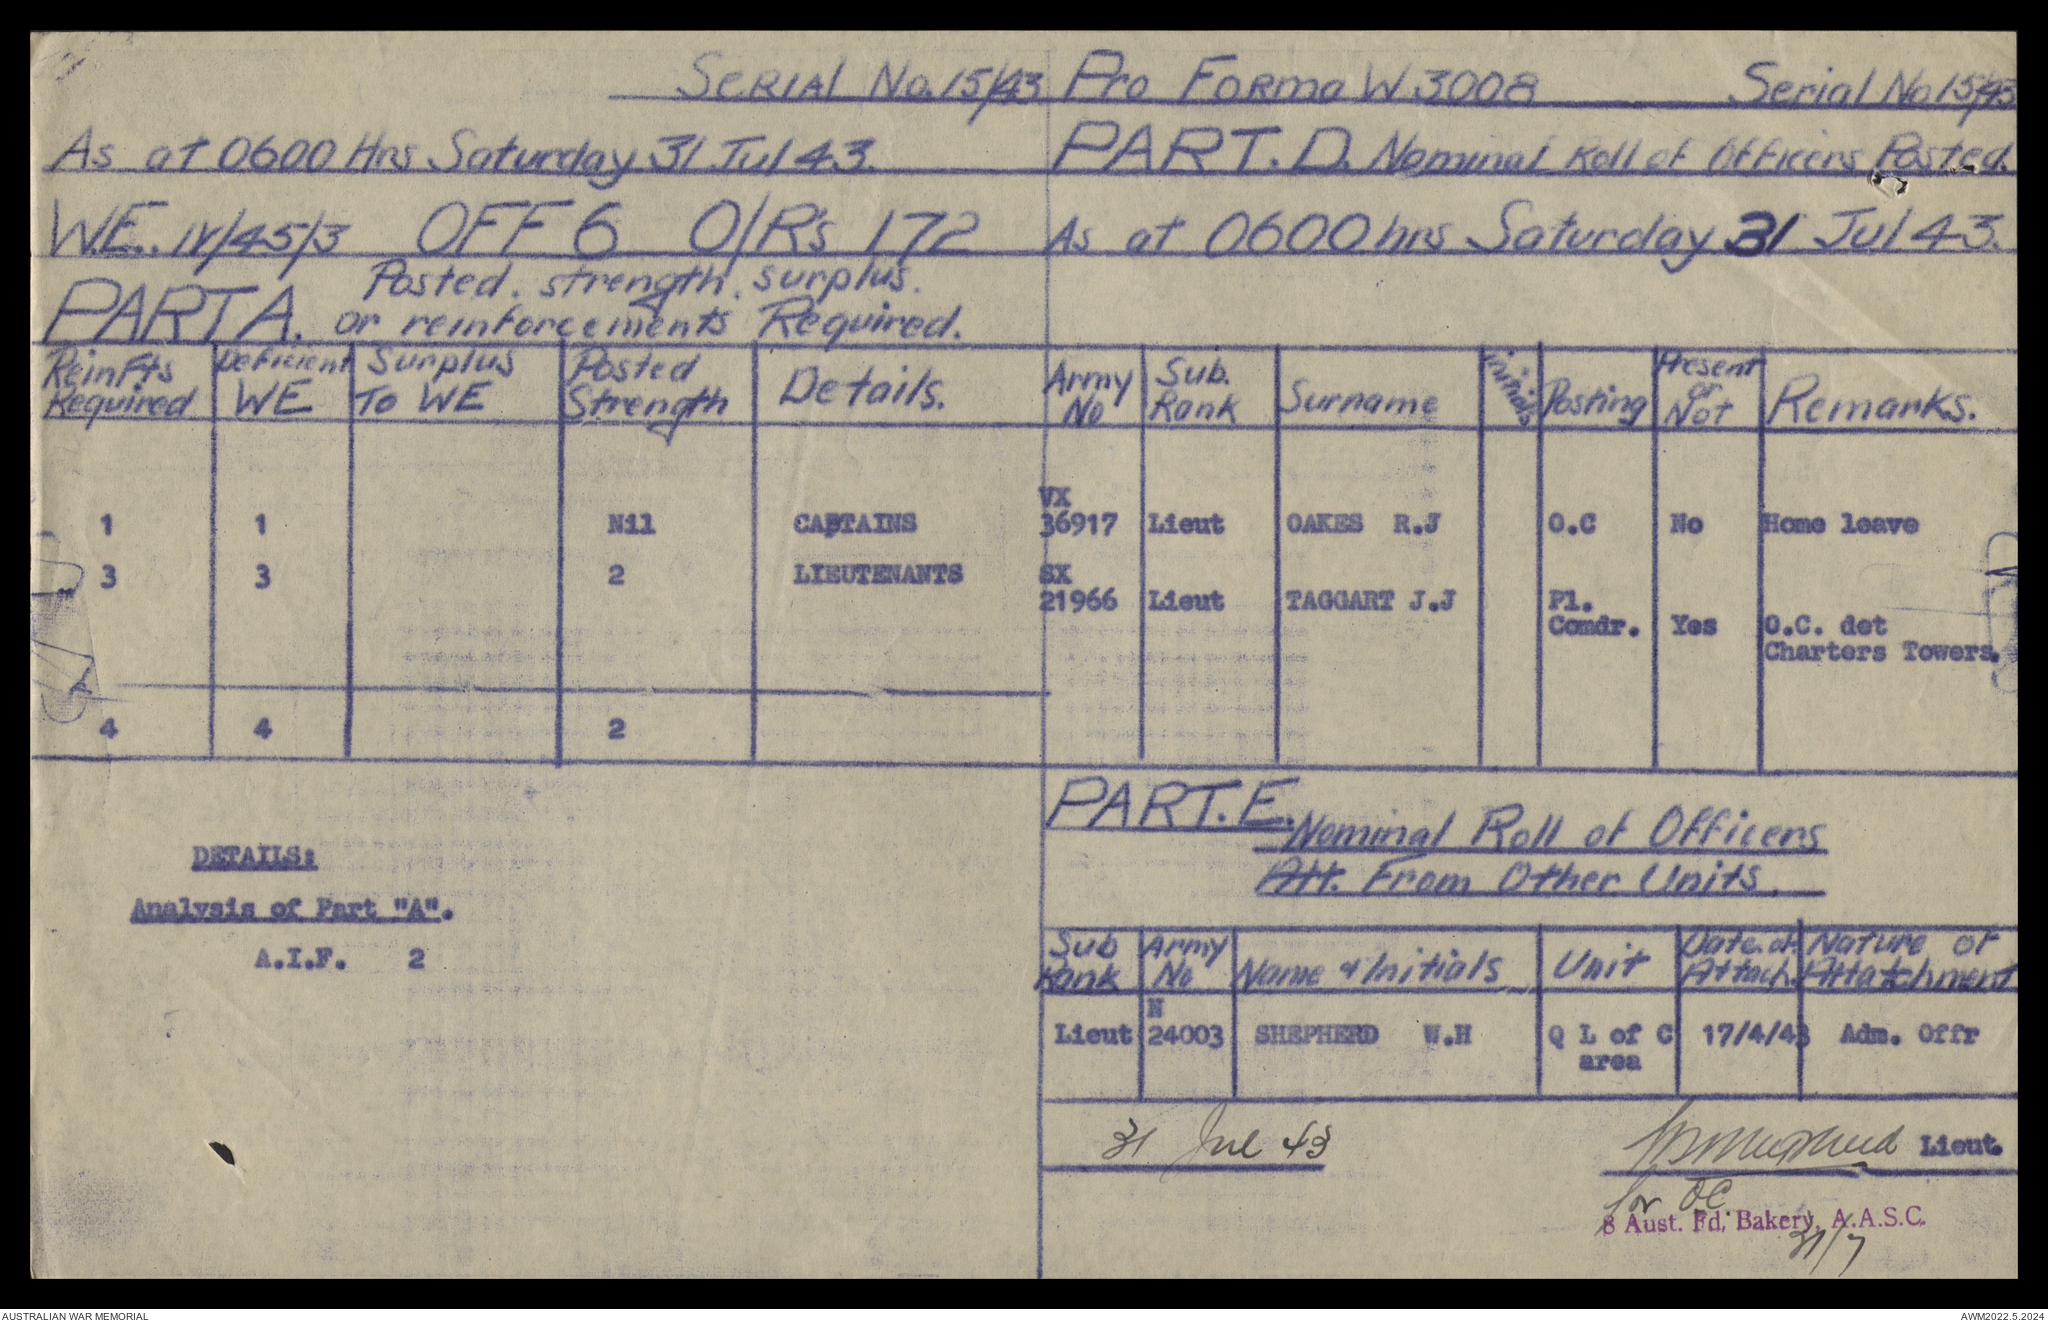 SERIAL No. 15/43
As at 0600 Hrs Saturday 31 Jul 43.
W.E. IV/45/3 OFF 6 O/R's 172
PART A. Posted strength, surplus.
or reinforcements Required.
Reinfts Required | Deficient WE | Surplus To WE | Posted Strength | Details.
1 1 Nil CAPTAINS
3 3 2 LIEUTENANTS
4 4 2
DETAILS:
Analysis of Part "A".
A.I.F. 2
Pro Forma W 3008 Serial No 15/43
PART. D. Nominal Roll of Officers Posted.
As at 0600 hrs Saturday 31 Jul 43.
Army No | Sub. Rank | Surname | Initials | Posting | Present or Not | Remarks.
VX
36917 Lieut OAKES R.J O.C No Home leave
SX
21966 Lieut TAGGART J.J Pl.
Comdr. Yes O.C. det
Charters Towers.
PART. E. Nominal Roll of Officers
Att. From Other Units.
Sub Rank | Army No | Name & Initials | Unit | Date of Attach. | Nature of Attatchment
N
Lieut 24003 SHEPHERD W.H Q L of C 17/4/43 Adm. Offr
area
31 Jul 43
Lieut.
for OC.
8 Aust. Fd. Bakery, A.A.S.C.
31/7
AUSTRALIAN WAR MEMORIAL
AWM2022.5.2024